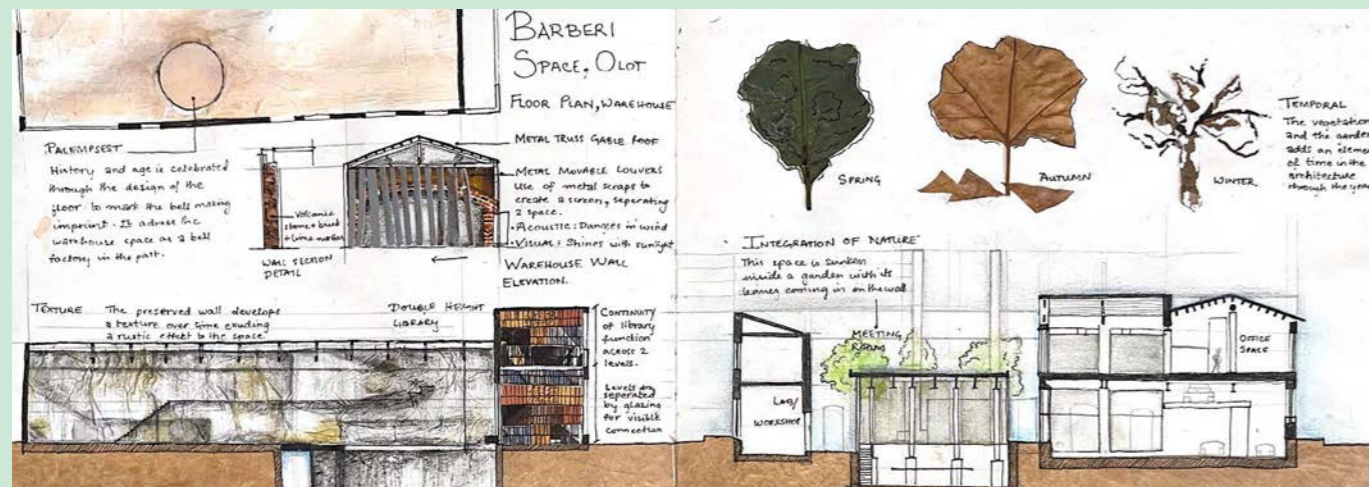 BARBERI
SPACE, OLOT
FLOOR PLAN, WAREHOUSE
PALEMPSEST
History and age is celebrated
through the design of the
floor to mark the bell making
imprint. It adress the
warehouse space as a bell
factory in the past.
Volcanic
stone + brick
+ lime mortar
WALL SECTION
DETAIL
METAL TRUSS GABLE ROOF
METAL MOVABLE LOUVERS
Use of metal scraps to
create a screen, seperating
2 space.
• Acoustic: Dances in wind
• Visual: Shines with sunlight
WAREHOUSE WALL
ELEVATION.
TEXTURE The preserved wall develops
a texture over time exuding
a rustic effect to the space.
DOUBLE HEIGHT
LIBRARY
CONTINUITY
of library
function
across 2
levels.
Levels are
seperated
by glazing
for visible
connection
SPRING
AUTUMN
WINTER
TEMPORAL
The vegetation
and the garden
adds an element
of time in the
architecture
through the year
INTEGRATION OF NATURE
This space is sunken
inside a garden with its
leaves coming in on the wall
MEETING
ROOMS
LAB/
WORKSHOP
OFFICE
SPACE